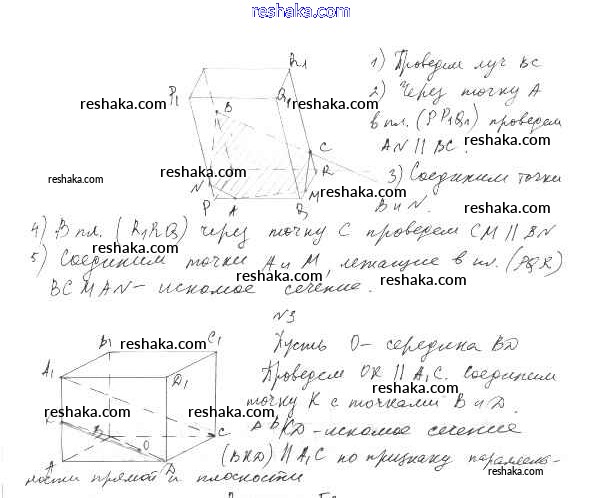 reshaka.com
1) Проведем луч BC
2) Через точку A
в пл. (PP₁Q₁) проведем
AN || BC.
3) Соединим точки
B и N.
R₁
P₁
B
Q₁
C
R
N
M
P
A
Q
4) В пл. (R₁RQ) через точку C проведем CM || BN
5) Соединим точки A и M, лежащие в пл. (PQR)
BCMAN - искомое сечение.
N3
Пусть O - середина BD
Проведем OK || A₁C. Соединим
точку K с точками B и D.
BKD - искомое сечение
(BKD) || A₁C по признаку параллель-
ности прямой и плоскости
B₁
C₁
A₁
D₁
K
B
C
O
A
D
reshaka.com
reshaka.com
reshaka.com
reshaka.com
reshaka.com
reshaka.com
reshaka.com
reshaka.com
reshaka.com
reshaka.com
reshaka.com
reshaka.com
reshaka.com
reshaka.com